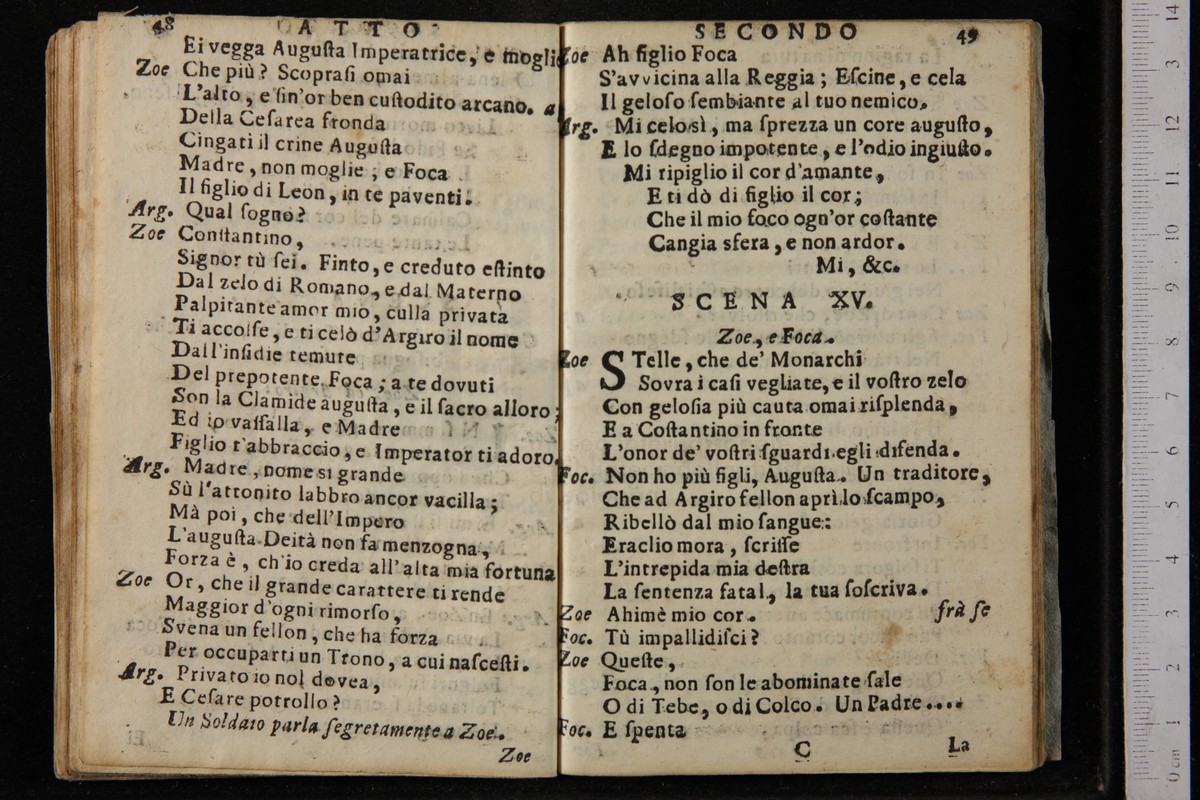 48 ATTO
Ei vegga Auguſta Imperatrice, e mogli
Zoe Che più? Scopraſi omai
L'alto, e ſin'or ben cuſtodito arcano. a
Della Ceſarea fronda
Cingati il crine Auguſta
Madre, non moglie; e Foca
Il figlio di Leon, in te paventi.
Arg. Qual ſogno?
Zoe Conſtantino,
Signor tù ſei. Finto, e creduto eſtinto
Dal zelo di Romano, e dal Materno
Palpitante amor mio, culla privata
Ti accolſe, e ti celò d'Argiro il nome
Dall'inſidie temute
Del prepotente Foca; a te dovuti
Son la Clamide auguſta, e il ſacro alloro;
Ed io vaſſalla, e Madre
Figlio t'abbraccio, e Imperator ti adoro.
Arg. Madre, nome sì grande
Sù l'attonito labbro ancor vacilla;
Mà poi, che dell'Impero
L'auguſta Deità non fa menzogna,
Forza è, ch'io creda all'alta mia fortuna
Zoe Or, che il grande carattere ti rende
Maggior d'ogni rimorſo,
Svena un fellon, che ha forza
Per occuparti un Trono, a cui naſceſti.
Arg. Privato io nol dovea,
E Ceſare potrollo?
Un Soldato parla ſegretamente a Zoe.
Zoe
SECONDO 49
Zoe Ah figlio Foca
S'avvicina alla Reggia; Eſcine, e cela
Il geloſo ſembiante al tuo nemico.
Arg. Mi celo sì, ma ſprezza un core auguſto,
E lo ſdegno impotente, e l'odio ingiuſto.
Mi ripiglio il cor d'amante,
E ti dò di figlio il cor;
Che il mio foco ogn'or coſtante
Cangia sfera, e non ardor.
Mi, &c.
SCENA XV.
Zoe, e Foca.
Zoe STelle, che de' Monarchi
Sovra i caſi vegliate, e il voſtro zelo
Con geloſia più cauta omai riſplenda,
E a Coſtantino in fronte
L'onor de' voſtri ſguardi egli difenda.
Foc. Non ho più figli, Auguſta. Un traditore,
Che ad Argiro fellon aprì lo ſcampo,
Ribellò dal mio ſangue:
Eraclio mora, ſcriſſe
L'intrepida mia deſtra
La ſentenza fatal, la tua ſoſcriva.
Zoe Ahimè mio cor. frà ſe
Foc. Tù impallidiſci?
Zoe Queſte,
Foca, non ſon le abominate ſale
O di Tebe, o di Colco. Un Padre....
Foc. E ſpenta
C La